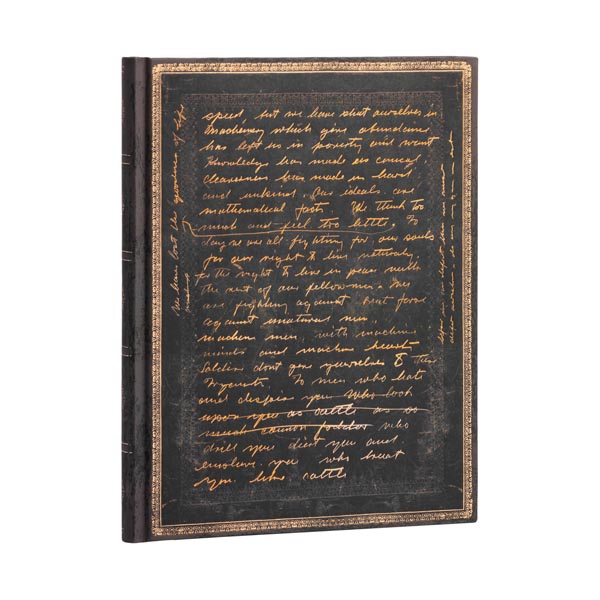 speed, but we have shut ourselves in
Machinery which gives abundance
has left us in poverty and want
Knowledge has made us cynical,
cleverness has made us hard
and unkind. Our ideals are
mathematical facts. We think too
much and feel too little. To
day we are all fighting for our souls
for our right to live naturally,
for the right to live in peace with
the rest of our fellowmen. We
are fighting against brut force
against unatural men,
machien men, with machine
minds and machine hearts
Soldiers dont give yourselves to these
To men who hate
and despise you Who look
upon you as cattle as
much cannon fodder who
drill you diet you and
enslave you who treat
you like cattle
We have lost the
of life